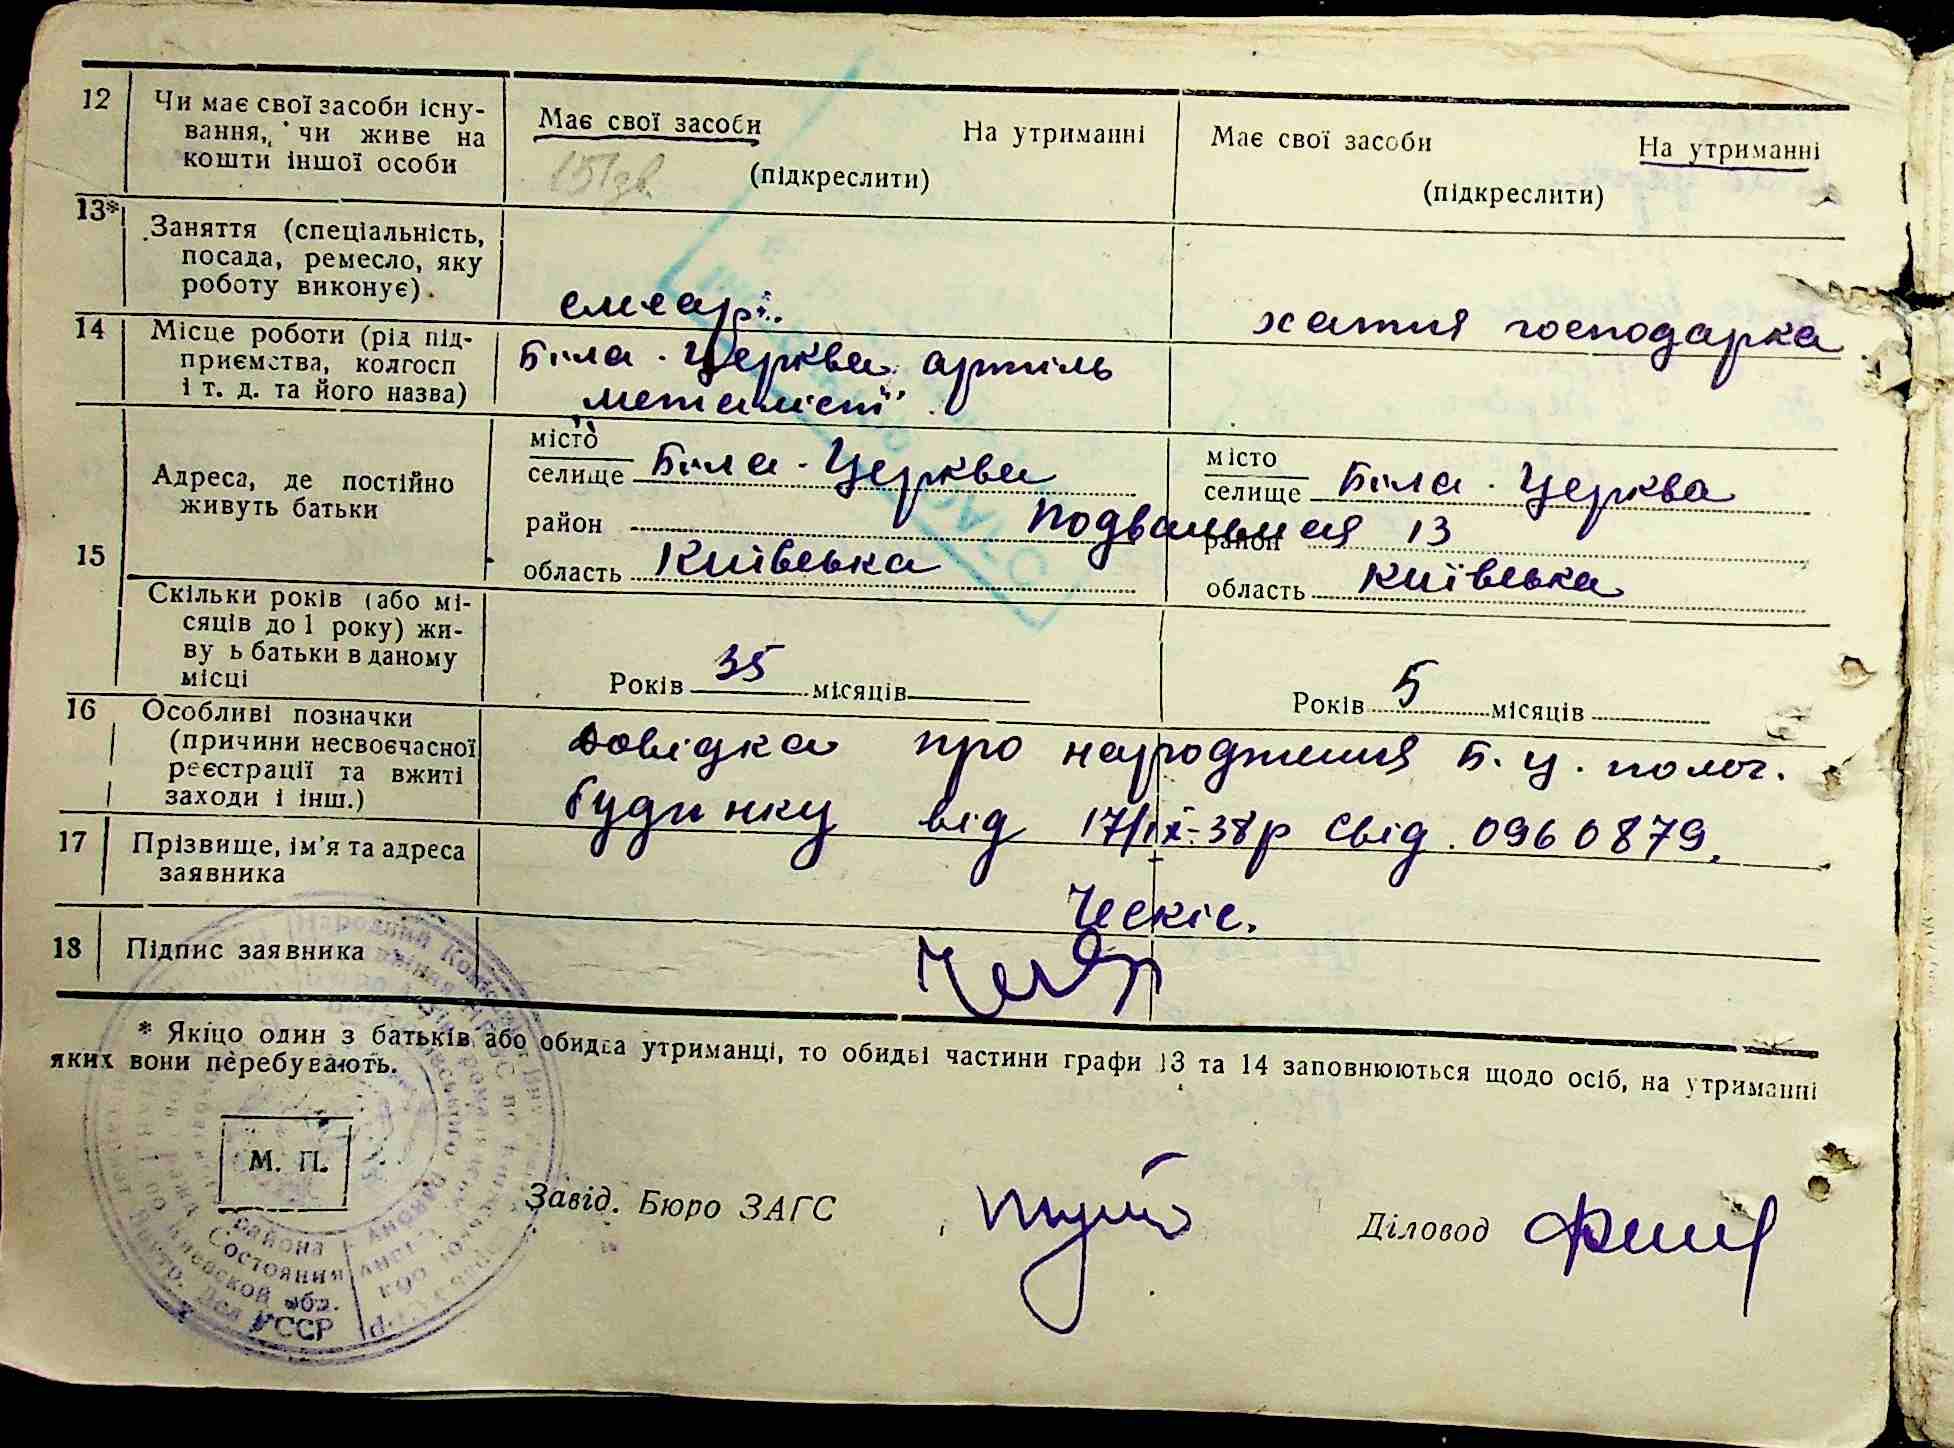 12 Чи має свої засоби існу-
вання, чи живе на
кошти іншої особи
Має свої засоби На утриманні
(підкреслити)
Має свої засоби На утриманні
(підкреслити)
13* Заняття (спеціальність,
посада, ремесло, яку
роботу виконує).
слюсар.
хатня господарка
14 Місце роботи (рід під-
приємства, колгосп
і т. д. та його назва)
Біла-Церква артіль
"металіст".
15 Адреса, де постійно
живуть батьки
місто
селище Біла-Церква
район Подвальная 13
область Київська
місто
селище Біла-Церква
район
область Київська
Скільки років (або мі-
сяців до 1 року) жи-
ву ь батьки в даному
місці
Років 35 місяців
Років 5 місяців
16 Особливі позначки
(причини несвоєчасної
реєстрації та вжиті
заходи і інш.)
Довідка про народження Б.Ц. полог.
будинку від 17/IX-38р Свід. 0960879.
17 Прізвище, ім'я та адреса
заявника
Ческіс.
18 Підпис заявника
* Якщо один з батьків або обидва утриманці, то обидві частини графи 13 та 14 заповнюються щодо осіб, на утриманні
яких вони перебувають.
М. П.
Завід. Бюро ЗАГС
Діловод
района
Состояния
Киевской обл.
Внутр. Дел УССР